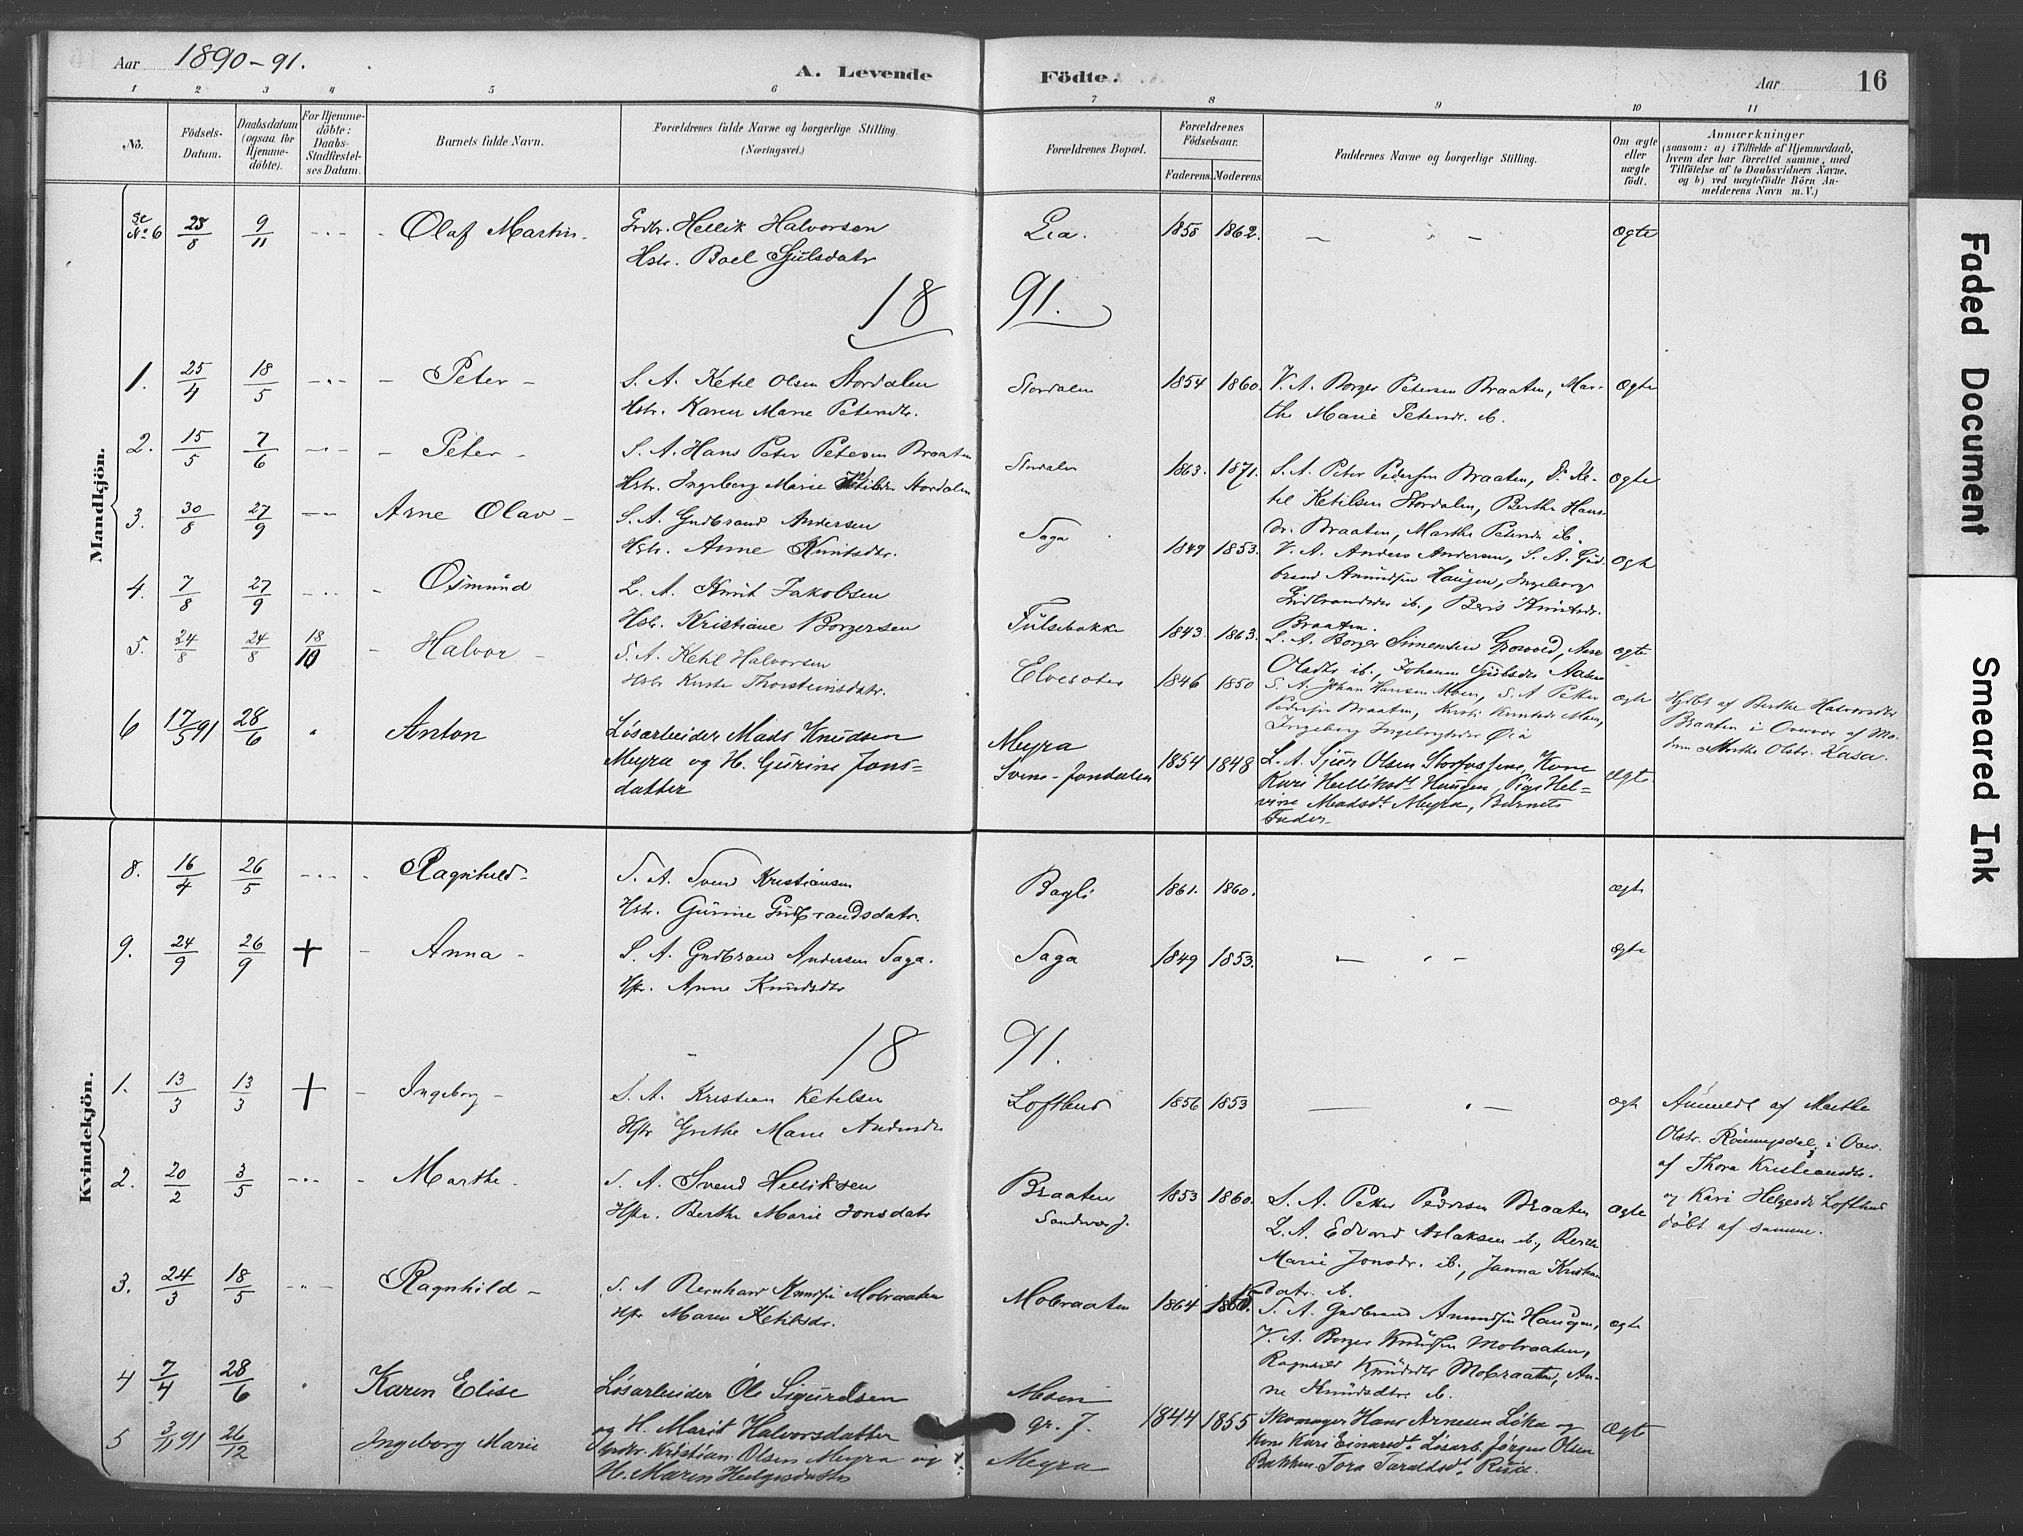 Aar 1890-91. A. Levende Födte. Aar 16
1 2 3 4 5 6 7 8 9 10 11
No. Födsels-Datum. Daabsdatum (ogsaa for Hjemme-döbte). For Hjemme-döbte: Daabs-Stadfæstel-ses Datum. Barnets fulde Navn. Forældrenes fulde Navne og borgerlige Stilling. (Næringsvei.) Forældrenes Bopæl. Forældrenes Födselsaar. Faderens. Moderens. Faddernes Navne og borgerlige Stilling. Om ægte eller uægte födt. Anmærkninger (saasom: a) i Tilfælde af Hjemmedaab, hvem der har forrettet samme, med Tilföielse af to Daabsvidners Navne. og b) ved uægtefödte Börn An-melderens Navn m. V.)
Mandkjön.
No 6 28/8 9/11 Olaf Martin Hellik Halvorsen Lia. 1855 1862. ægte
Hstr. Boel Gjulsdatr
18 91.
1. 25/4 18/5 Peter S. A. Ketil Olsen Stordalen Stordalen 1854 1860. V. A. Borger Petersen Braaten, Mar- ægte
Hstr. Karen Marie Petersdtr. the Marie Petersdr. ib.
2. 15/5 7/6 Peter S. A. Hans Peter Petersen Braaten Stordalen 1863. 1871. S. A. Peter Pedersen Braaten, Do Ke- ægte
Hstr. Ingeborg Marie Stordalen til Ketilsen Stordalen, Berthe Hans-
dr. Braaten, Marthe Petersdr ib.
3. 30/8 27/9 Arne Olav S. A. Gudbrand Andersen Saga 1849 1853. V. A. Anders Andersen, S. A. Gud- ægte
Hstr. Anne Knutsdtr. brand Amundsen Haugen, Ingeborg
Gudbrandsdr ib., Beris Knutsdr.
Braaten.
4. 7/8 27/9 Osmund L. A. Knut Jakobsen Tulsebakke 1843. 1863. L. A. Borger Simensen ægte
Hstr. Kristiane Borgersen Olsdtr ib., Johanne Gjulsdr Aasen
5. 24/8 24/8 18/10 Halvor S. A. Ketil Halvorsen Elvesøter 1846 1850 S. A. Johan Hansen Moen, S. A. Petter ægte
Hstr Kirsti Thorsteinsdatr. Pedersen Braaten, Kirsti Knutsdr Moen,
Ingeborg
Hjdbt af Berthe Halvorsdtr
Braaten i Overvær af Mo-
Marthe Olstr. Kasa.
6 17/5 91 28/6 Anton Løsarbeider Mads Knudsen Meyra 1854 1848 L. A. Sjur Olsen Storfossene, Kone ægte
Meyra og H. Gurine Jons- Svene-Jondalen Kari Helliksdt Haugen, Pige Hel-
datter vine Madsdt Meyra, Barnets
Fader.
Kvindekjön.
8. 16/4 26/5 Ragnhild S. A. Svend Kristiansen Bagli 1861. 1860. ægte
Hstr. Gurine Gudbrandsdatr.
9. 24/9 26/9 + Anna S. A. Gudbrand Andersen Saga. Saga 1849 1853. ægte
Hstr. Anne Knudsdtr
18 91.
1. 13/3 13/3 + Ingeborg S. A. Kristian Ketilsen Lofthus 1856 1853 ægte Anmeldt af Marthe
Hstr Grethe Marie Andersdr Olstr. i Over.
af Thora Kristiansdtr.
og Kari Helgesdr Lofthus
döbt af samme.
2. 20/2 3/5 Marthe S. A. Svend Helliksen Braaten 1853 1860. S. A. Petter Pedersen Braaten ægte
Hstr. Berthe Marie Jonsdatr Sandsvær J. L. A. Edvard Aslaksen ib., Berthe
Marie Jonsdr. ib., Janna Kristian
datr. ib.
3. 24/3 18/5 Ragnhild S. A Bernhard Knudsen Mobraaten Mobraaten 1864 S. A. Gudbrand Amundsen Haugen, ægte
Hstr Maren Ketilsdr. V. A. Borger Knudsen Mobraaten,
Ragnild Knudsdtr Mobraaten, An-
ne Knudsdtr ib.
4 7/4 28/6 Karen Elise Løsarbeider Ole Sigurdsen Moen 1844 1855 Skomager Hans Arnesen Løka og ægte
og H. Marit Halvorsdatter gr. J. Kone Kari Einarsdt Løsarb. Jørgen Olsen
Bakken Tora Taraldsdt Rua.
5 3/11 91 26/12 Ingeborg Marie Kristian Olsen Meyra og Meyra
H. Maren Helgesdatter
Faded Document
Smeared Ink